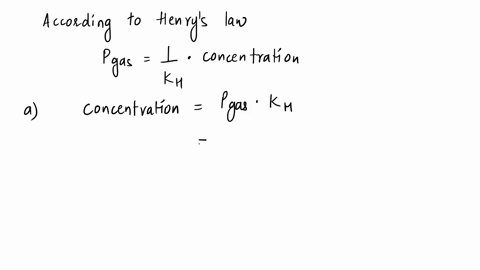 According to Henry's law
Pgas = 1/KH · concentration
a) Concentration = Pgas · KH
=